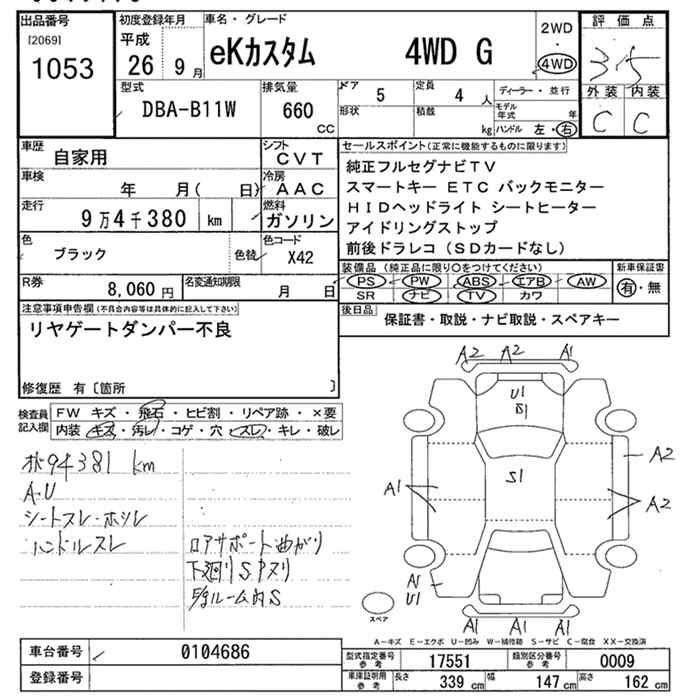 出品番号
[2069]
1053
初度登録年月
平成
26 9 月
車名・グレード
eKカスタム 4WD G
2WD
・
4WD
評価点
3.5
外装 内装
C C
型式
DBA-B11W
排気量
660
cc
ドア 5
定員 4 人
形状
積載 kg
ディーラー・並行
モデル年式 年
ハンドル 左・右
車歴
自家用
シフト
CVT
車検
年 月( 日)
冷房
AAC
走行
9万4千380 km
燃料
ガソリン
色
ブラック
色替
色コード
X42
R券
8,060円
名変通知期限
月 日
セールスポイント(正常に機能するものに限ります)
純正フルセグナビTV
スマートキー ETC バックモニター
HIDヘッドライト シートヒーター
アイドリングストップ
前後ドラレコ(SDカードなし)
装備品(純正品に限り○をつけてください)
PS PW ABS エアB AW
SR ナビ TV カワ
新車保証書
有・無
後日品
保証書・取説・ナビ取説・スペアキー
注意事項申告欄(不具合内容等は具体的に記入して下さい)
リヤゲートダンパー不良
修復歴 有〔箇所 〕
検査員記入欄
FW キズ・飛石・ヒビ割・リペア跡・×要
内装 キズ・汚レ・コゲ・穴・スレ・キレ・破レ
94381 km
A・U
シートスレ・ホツレ
ハンドルスレ
ロアサポート曲がり
下廻りSタヌリ
ルーム内S
A2 A2 A1
U1
B1
S1
A1
A2
A2
A1
U1
A1 A1 A1
スペア
A-キズ E-エクボ U-凹み W-補修跡 S-サビ C-腐食 XX-交換済
車台番号
0104686
登録番号
型式指定番号
参考
17551
類別区分番号
参考
0009
車庫証明用
参考
長さ 339 cm
幅 147 cm
高さ 162 cm